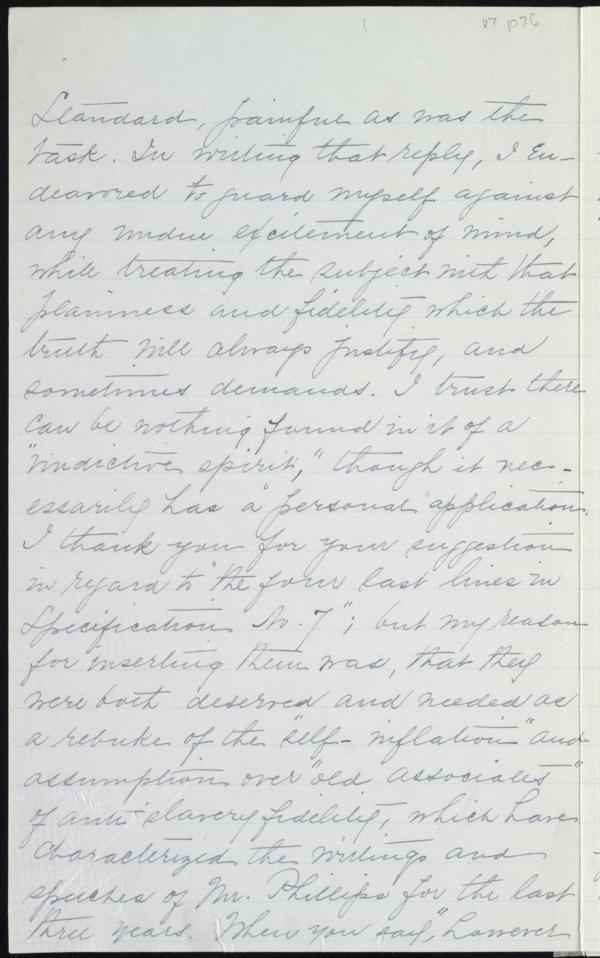 1
v7 p76
Standard, painful as was the
task. In writing that reply, I en-
deavored to guard myself against
any undue excitement of mind,
while treating the subject with that
plainness and fidelity which the
truth will always justify, and
sometimes demands. I trust there
can be nothing found in it of a
"vindictive spirit," though it nec-
essarily has a "personal" application.
I thank you for your suggestion
in regard to "the four last lines in
Specification No. 7"; but my reason
for inserting them was, that they
were both deserved and needed as
a rebuke of the "self-inflation" and
assumption over "old associates"
of anti-slavery fidelity, which have
characterized the writings and
speeches of Mr. Phillips for the last
three years. When you say, "however